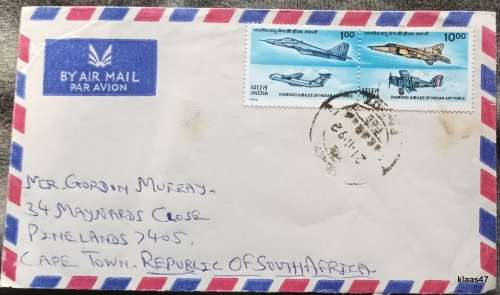 BY AIR MAIL
PAR AVION
1.00
10.00
भारत
INDIA
DIAMOND JUBILEE OF INDIAN AIR FORCE
1992
DIAMOND JUBILEE OF INDIAN AIR FORCE
MR. GORDON MURRAY.
34 MAYNARDS CLOSE
PINELANDS 7405.
CAPE TOWN. REPUBLIC OF SOUTH AFRICA
klaas47